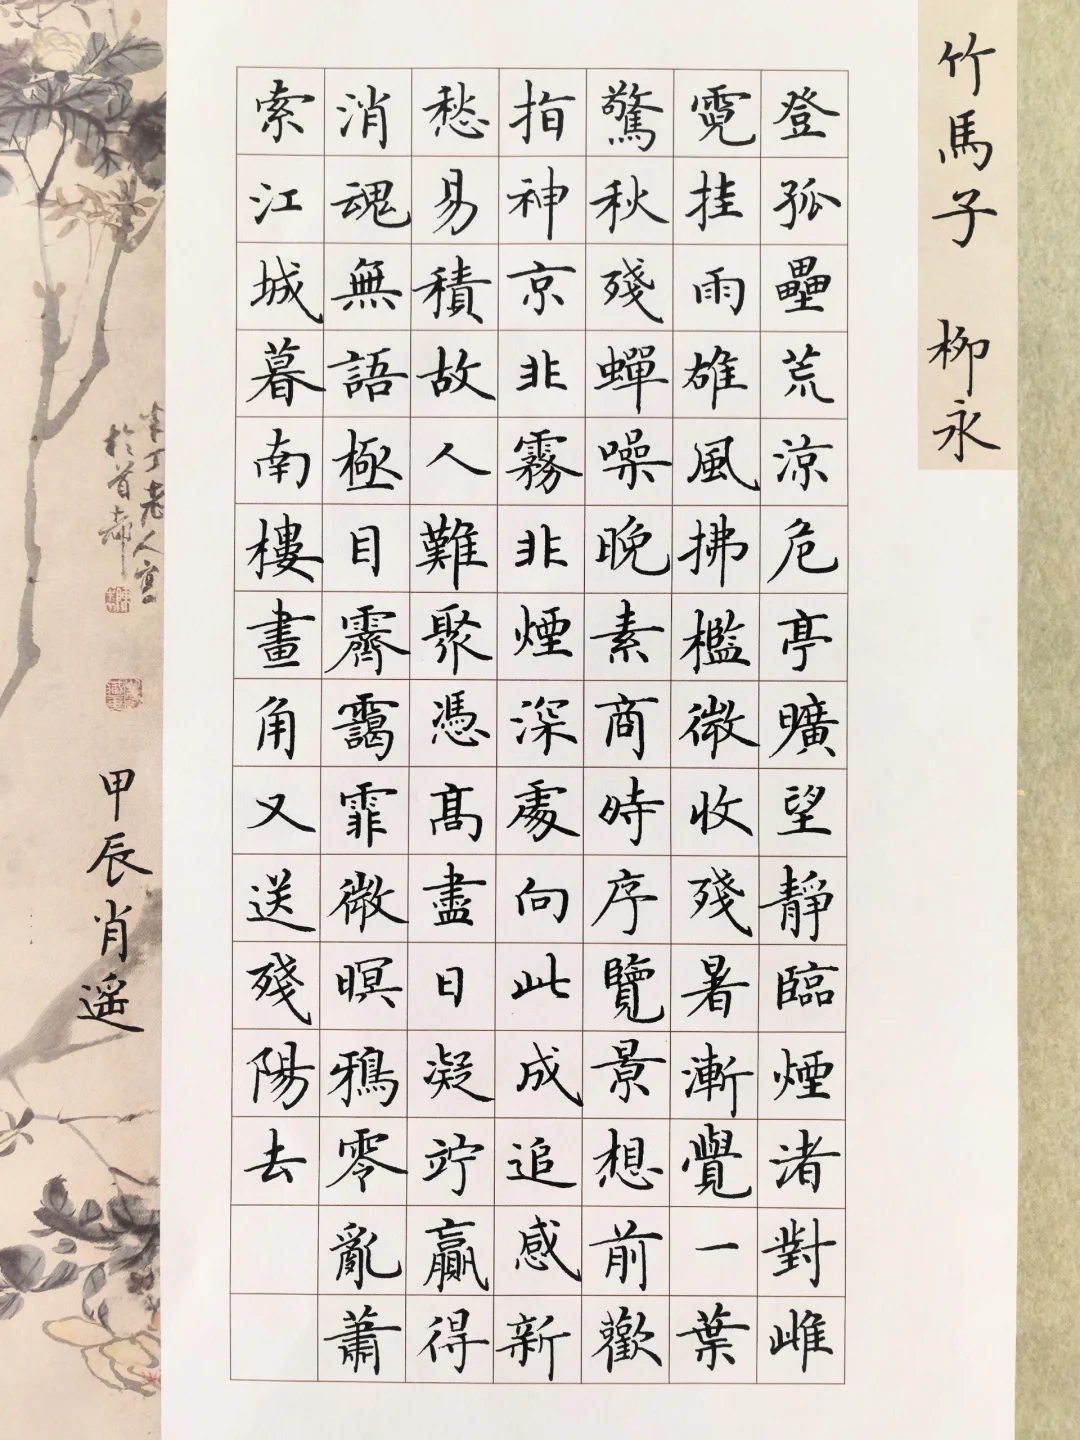 竹馬子 柳永
登孤壘荒涼危亭曠望靜臨煙渚對雌
霓挂雨雄風拂檻微收殘暑漸覺一葉
驚秋殘蟬噪晚素商時序覽景想前歡
指神京非霧非煙深處向此成追感新
愁易積故人難聚憑髙盡日凝竚贏得
消魂無語極目霽靄霏微暝鴉零亂蕭
索江城暮南樓畫角又送殘陽去
半丁老人
於首都
甲辰肖遥